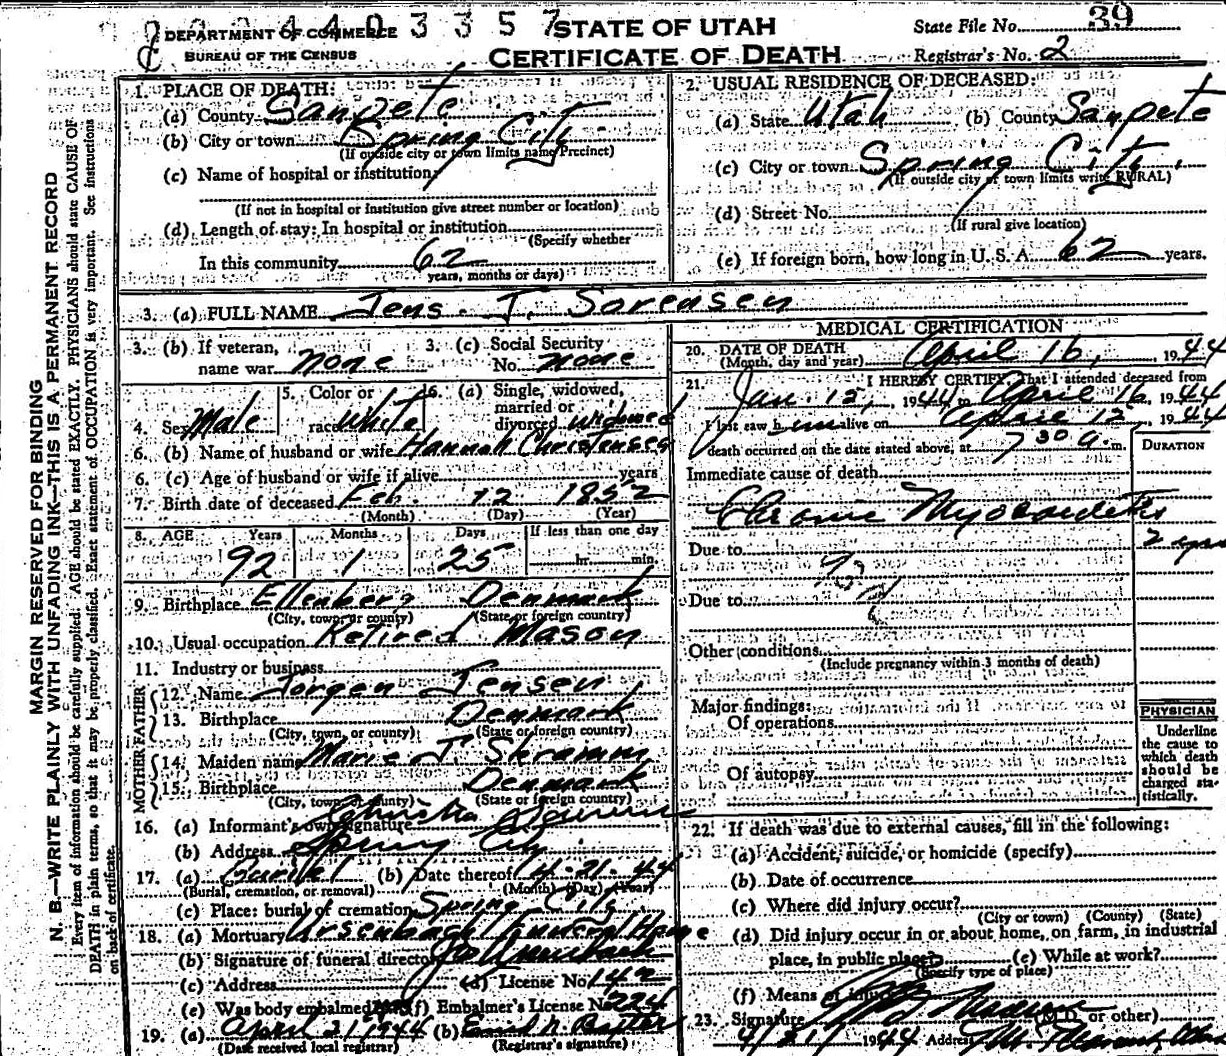 2 2 4 4 0 3 3 5 7
DEPARTMENT OF COMMERCE
BUREAU OF THE CENSUS
STATE OF UTAH
CERTIFICATE OF DEATH
State File No. 39
Registrar's No. 2
MARGIN RESERVED FOR BINDING
N. B.—WRITE PLAINLY WITH UNFADING INK—THIS IS A PERMANENT RECORD
Every item of information should be carefully supplied. AGE should be stated EXACTLY. PHYSICIANS should state CAUSE OF
DEATH in plain terms, so that it may be properly classified. Exact statement of OCCUPATION is very important. See instructions
on back of certificate.
1. PLACE OF DEATH:
(a) County Sanpete
(b) City or town Spring City
(If outside city or town limits name Precinct)
(c) Name of hospital or institution:
(If not in hospital or institution give street number or location)
(d) Length of stay: In hospital or institution
(Specify whether
In this community 62
years, months or days)
2. USUAL RESIDENCE OF DECEASED:
(a) State Utah (b) County Sanpete
(c) City or town Spring City,
(If outside city or town limits write RURAL)
(d) Street No.
(If rural give location)
(e) If foreign born, how long in U. S. A. 62 years.
3. (a) FULL NAME Jens J. Sorensen
3. (b) If veteran,
name war none
3. (c) Social Security
No. none
4. Sex Male
5. Color or
race White
6. (a) Single, widowed,
married or
divorced widowed
6. (b) Name of husband or wife Hannah Christensen
6. (c) Age of husband or wife if alive years
7. Birth date of deceased Feb. 12 1852
(Month) (Day) (Year)
8. AGE Years Months Days If less than one day
92 1 25 hr. min.
9. Birthplace Ellenberg Denmark
(City, town, or county) (State or foreign country)
10. Usual occupation Retired Mason
11. Industry or business
FATHER
12. Name Jorgen Jensen
13. Birthplace Denmark
(City, town, or county) (State or foreign country)
MOTHER
14. Maiden name Marie J. Skramm
15. Birthplace Denmark
(City, town, or county) (State or foreign country)
16. (a) Informant's own signature
(b) Address Spring City
17. (a) Burial (b) Date thereof 4-21-44
(Burial, cremation, or removal) (Month) (Day) (Year)
(c) Place: burial or cremation Spring City
18. (a) Mortuary Ursenbach Funeral Home
(b) Signature of funeral director
(c) Address (d) License No. 142
(e) Was body embalmed (f) Embalmer's License No. 224
19. (a) April 21 1944 (b)
(Date received local registrar) (Registrar's signature)
MEDICAL CERTIFICATION
20. DATE OF DEATH
(Month, day and year) April 16, 1944
21. I HEREBY CERTIFY, That I attended deceased from
Jan. 12, 1944 to April 16, 1944
I last saw him alive on April 12, 1944
death occurred on the date stated above, at 7 30 a. m.
DURATION
Immediate cause of death
Chronic Myocarditis
2 yrs
Due to
Due to
Other conditions
(Include pregnancy within 3 months of death)
Major findings:
Of operations
Of autopsy
PHYSICIAN
Underline
the cause to
which death
should be
charged sta-
tistically.
22. If death was due to external causes, fill in the following:
(a) Accident, suicide, or homicide (specify)
(b) Date of occurrence
(c) Where did injury occur?
(City or town) (County) (State)
(d) Did injury occur in or about home, on farm, in industrial
place, in public place? (e) While at work?
(Specify type of place)
(f) Means of injury
23. Signature (M.D. or other)
4/21/1944 Address Mt. Pleasant, Utah